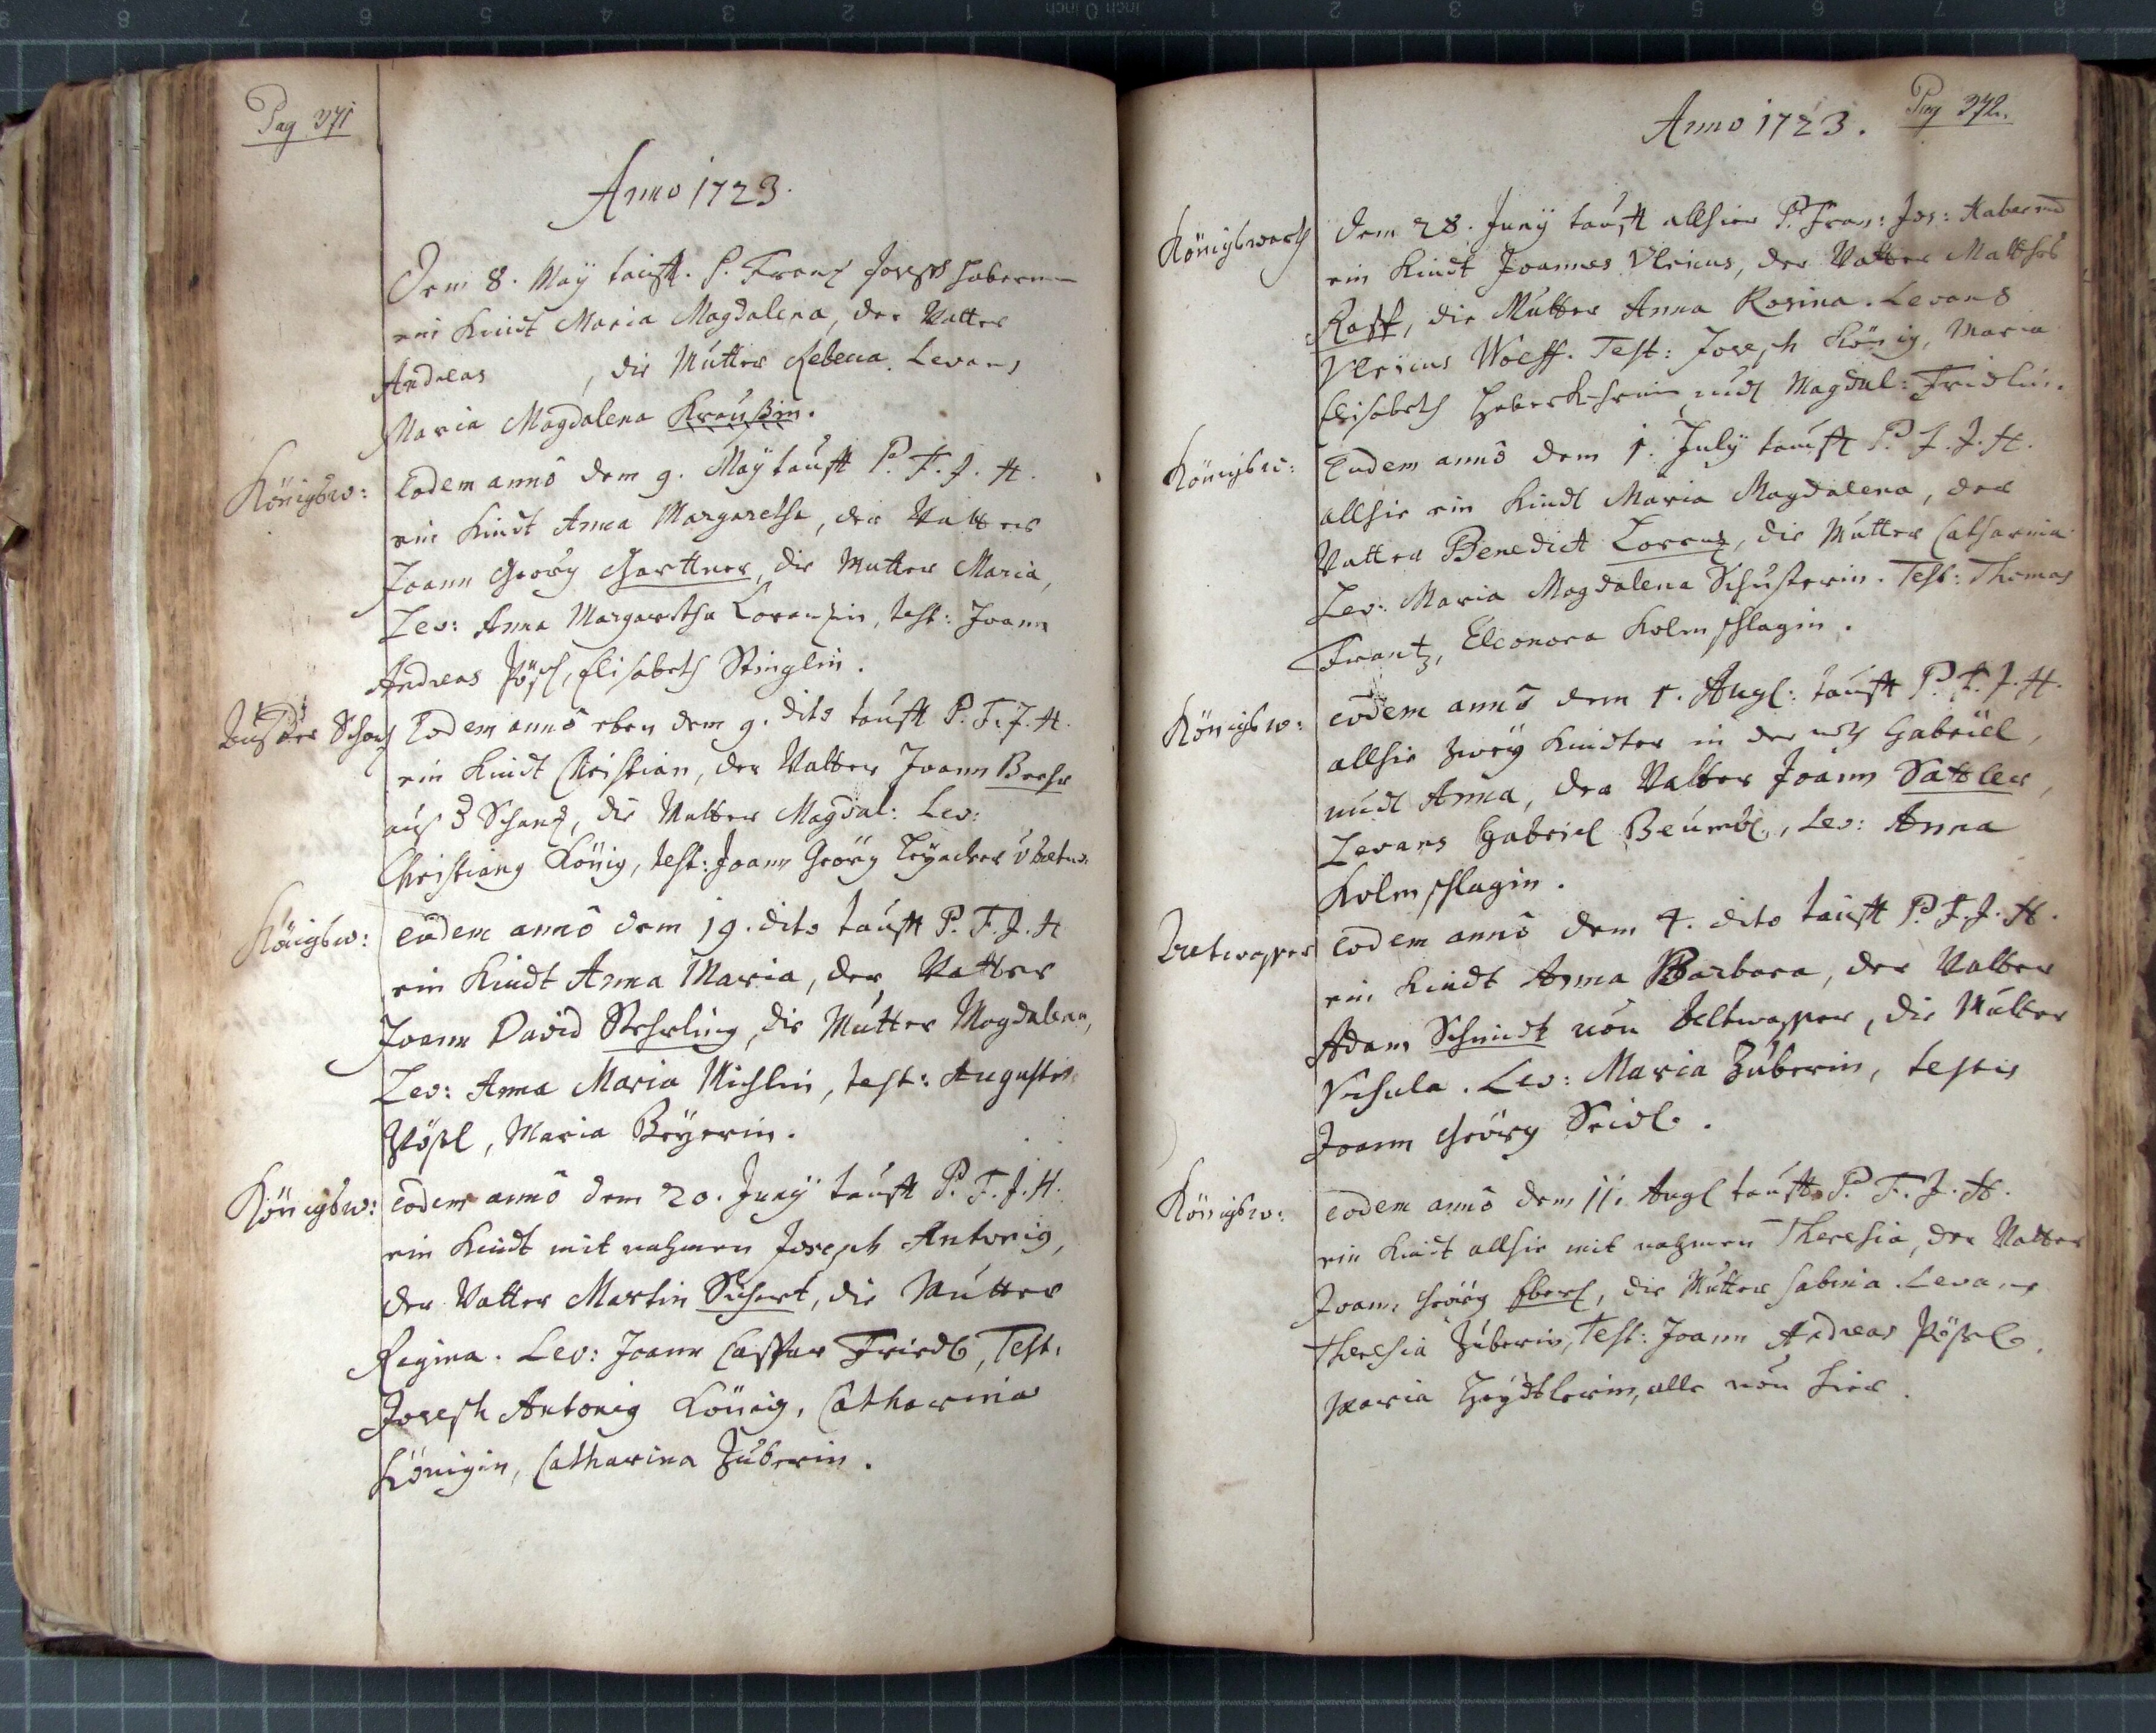 Pag 371
Anno 1723.
Dem 8. May taufft. P. Frantz Joseph Haberm
ein Kindt Maria Magdalena, der Vatter
Andreas , die Mutter Rebecca. Levans
Maria Magdalena Kraußin.
Königsw:
Eodem anno dem 9. May taufft P. F. J. H.
ein Kindt Anna Margaretha, der Vatter
Joann Georg Garttner, die Mutter Maria,
Lev: Anna Margaretha Lorentzin, test: Joann
Andreas Pößl, Elisabeth Stinglin.
Schantz
Eodem anno eben dem 9. dito taufft P. F. J. H.
ein Kindt Christian, der Vatter Joann Beehr
auß d Schantz, die Mutter Magdal: Lev:
Christiang König, test: Joann Georg
Königsw:
Eodem anno dem 19. dito taufft P. F. J. H
ein Kindt Anna Maria, der Vatter
Joann David Stehrling, die Mutter Magdalena,
Lev: Anna Maria Michlin, test: Augustin
Pößl, Maria Beyerin.
Königsw:
Eodem anno dem 20. Juny taufft P. F. J. H.
ein Kindt mit nahmen Joseph Antonig,
der Vatter Martin Sichert, die Mutter
Regina. Lev: Joann Caspar Friedl, Test:
Joseph Antonig König, Catharina
Königin, Catharina Zuberin.
Pag 372.
Anno 1723.
Königswarth
Dem 28. Juny taufft allhier P. Fran: Jos: Haberm
ein Kindt Joannes Ulricus, der Vatter Matthes
Rast, die Mutter Anna Rosina. Levans
Ulricus Wolff. Test: Joseph König, Maria
Elisabeth undt Magdal: Fridlin.
Königsw:
Eodem anno dem 1. July taufft P. F. J. H.
allhie ein Kindt Maria Magdalena, der
Vatter Benedict Lorentz, die Mutter Catharina
Lev: Maria Magdalena Schusterin. Test: Thomas
Frantz, Eleonora Kolmschlagin.
Königsw:
Eodem anno dem 1. Augl: taufft P. F. J. H.
allhie zwey Kindter in der Gabriel,
undt Anna, der Vatter Joann Sattler,
Levans Gabriel Beuml, Lev: Anna
Kolmschlagin.
Eodem anno dem 4. dito taufft P. F. J. H.
ein Kindt Anna Barbara, der Vatter
Adam Schmidt von Altwasser, die Mutter
Ursula. Lev: Maria Zuberin, testis
Joann Georg Seidl.
Königsw:
Eodem anno dem 11. Augl taufft P. F. J. H.
ein Kindt allhie mit nahmen Theresia, der Vatter
Joann Georg Eberl, die Mutter Sabina. Levans
Theresia Zuberin, Test: Joann Andreas Pößl,
Maria Heydtlerin, alle von hier.